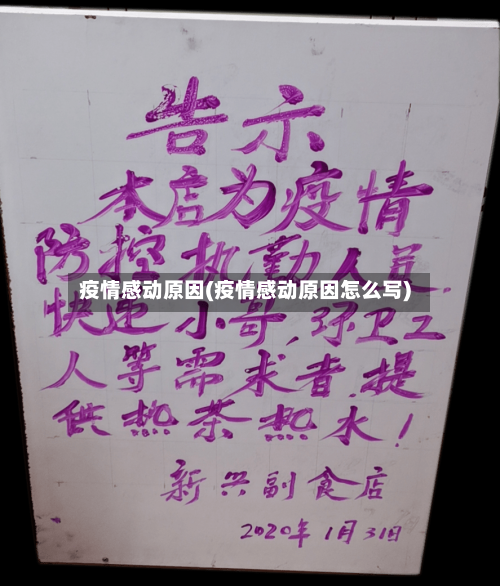 告示
本店为疫情
防控执勤人员.
疫情感动原因(疫情感动原因怎么写)
快递小哥,环卫工
人等需求者.提
供热茶热水!
新兴副食店
2020年1月31日